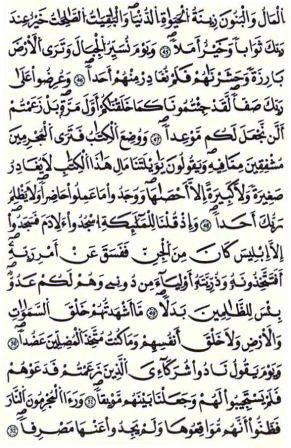 اَ۬لْمَالُ وَالْبَنُونَ زِينَةُ اُ۬لْحَيَوٰةِ اِ۬لدُّنْيَا وَالْبَٰقِيَٰتُ اُ۬لصَّٰلِحَٰتُ خَيْرٌ عِندَ
رَبِّكَ ثَوَاباً وَخَيْرٌ أَمَلاً ٤٥ وَيَوْمَ نُسَيِّرُ اُ۬لْجِبَالَ وَتَرَى اَ۬لْأَرْضَ
بَارِزَةً وَحَشَرْنَٰهُمْ فَلَمْ نُغَادِرْ مِنْهُمْ أَحَداً ٤٦ وَعُرِضُوا عَلَىٰ
رَبِّكَ صَفّاً لَّقَدْ جِئْتُمُونَا كَمَا خَلَقْنَٰكُمْ أَوَّلَ مَرَّةٍ بَلْ زَعَمْتُمْ
أَلَّن نَّجْعَلَ لَكُم مَّوْعِداً ٤٧ وَوُضِعَ اَ۬لْكِتَٰبُ فَتَرَى اَ۬لْمُجْرِمِينَ
مُشْفِقِينَ مِمَّا فِيهِ وَيَقُولُونَ يَٰوَيْلَتَنَا مَالِ هَٰذَا اَ۬لْكِتَٰبِ لَا يُغَادِرُ
صَغِيرَةً وَلَا كَبِيرَةً إِلَّا أَحْصَىٰهَا وَوَجَدُوا مَا عَمِلُوا حَاضِراً وَلَا يَظْلِمُ
رَبُّكَ أَحَداً ٤٨ وَإِذْ قُلْنَا لِلْمَلَٰٓئِكَةِ اِ۟سْجُدُوا لِأٓدَمَ فَسَجَدُوا
إِلَّا إِبْلِيسَ كَانَ مِنَ اَ۬لْجِنِّ فَفَسَقَ عَنْ أَمْرِ رَبِّهِ
أَفَتَتَّخِذُونَهُ وَذُرِّيَّتَهُ أَوْلِيَآءَ مِن دُونِي وَهُمْ لَكُمْ عَدُوٌّ
بِئْسَ لِلظَّٰلِمِينَ بَدَلاً ٤٩ مَّا أَشْهَدتُّهُمْ خَلْقَ اَ۬لسَّمَٰوَٰتِ
وَالْأَرْضِ وَلَا خَلْقَ أَنفُسِهِمْ وَمَا كُنتُ مُتَّخِذَ اَ۬لْمُضِلِّينَ عَضُداً ٥٠
وَيَوْمَ يَقُولُ نَادُوا شُرَكَآءِيَ اَ۬لذِينَ زَعَمْتُمْ فَدَعَوْهُمْ
فَلَمْ يَسْتَجِيبُوا لَهُمْ وَجَعَلْنَا بَيْنَهُم مَّوْبِقاً ٥١ وَرَءَا اَ۬لْمُجْرِمُونَ اَ۬لنَّارَ
فَظَنُّوا أَنَّهُم مُّوَاقِعُوهَا وَلَمْ يَجِدُوا عَنْهَا مَصْرِفاً ٥٢